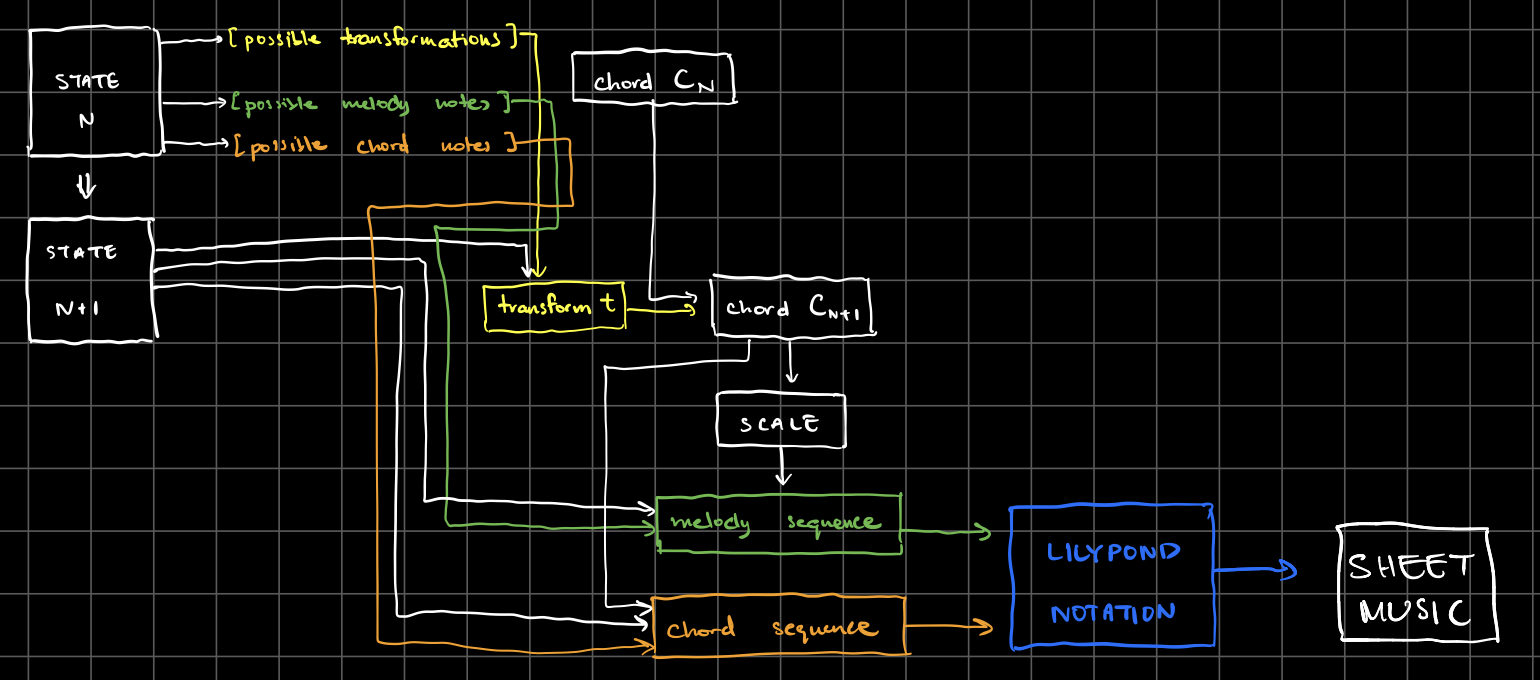 STATE
N
[possible transformations]
[possible melody notes]
[possible chord notes]
chord CN
STATE
N+1
transform t
chord CN+1
SCALE
melody sequence
chord sequence
LILYPOND
NOTATION
SHEET
MUSIC